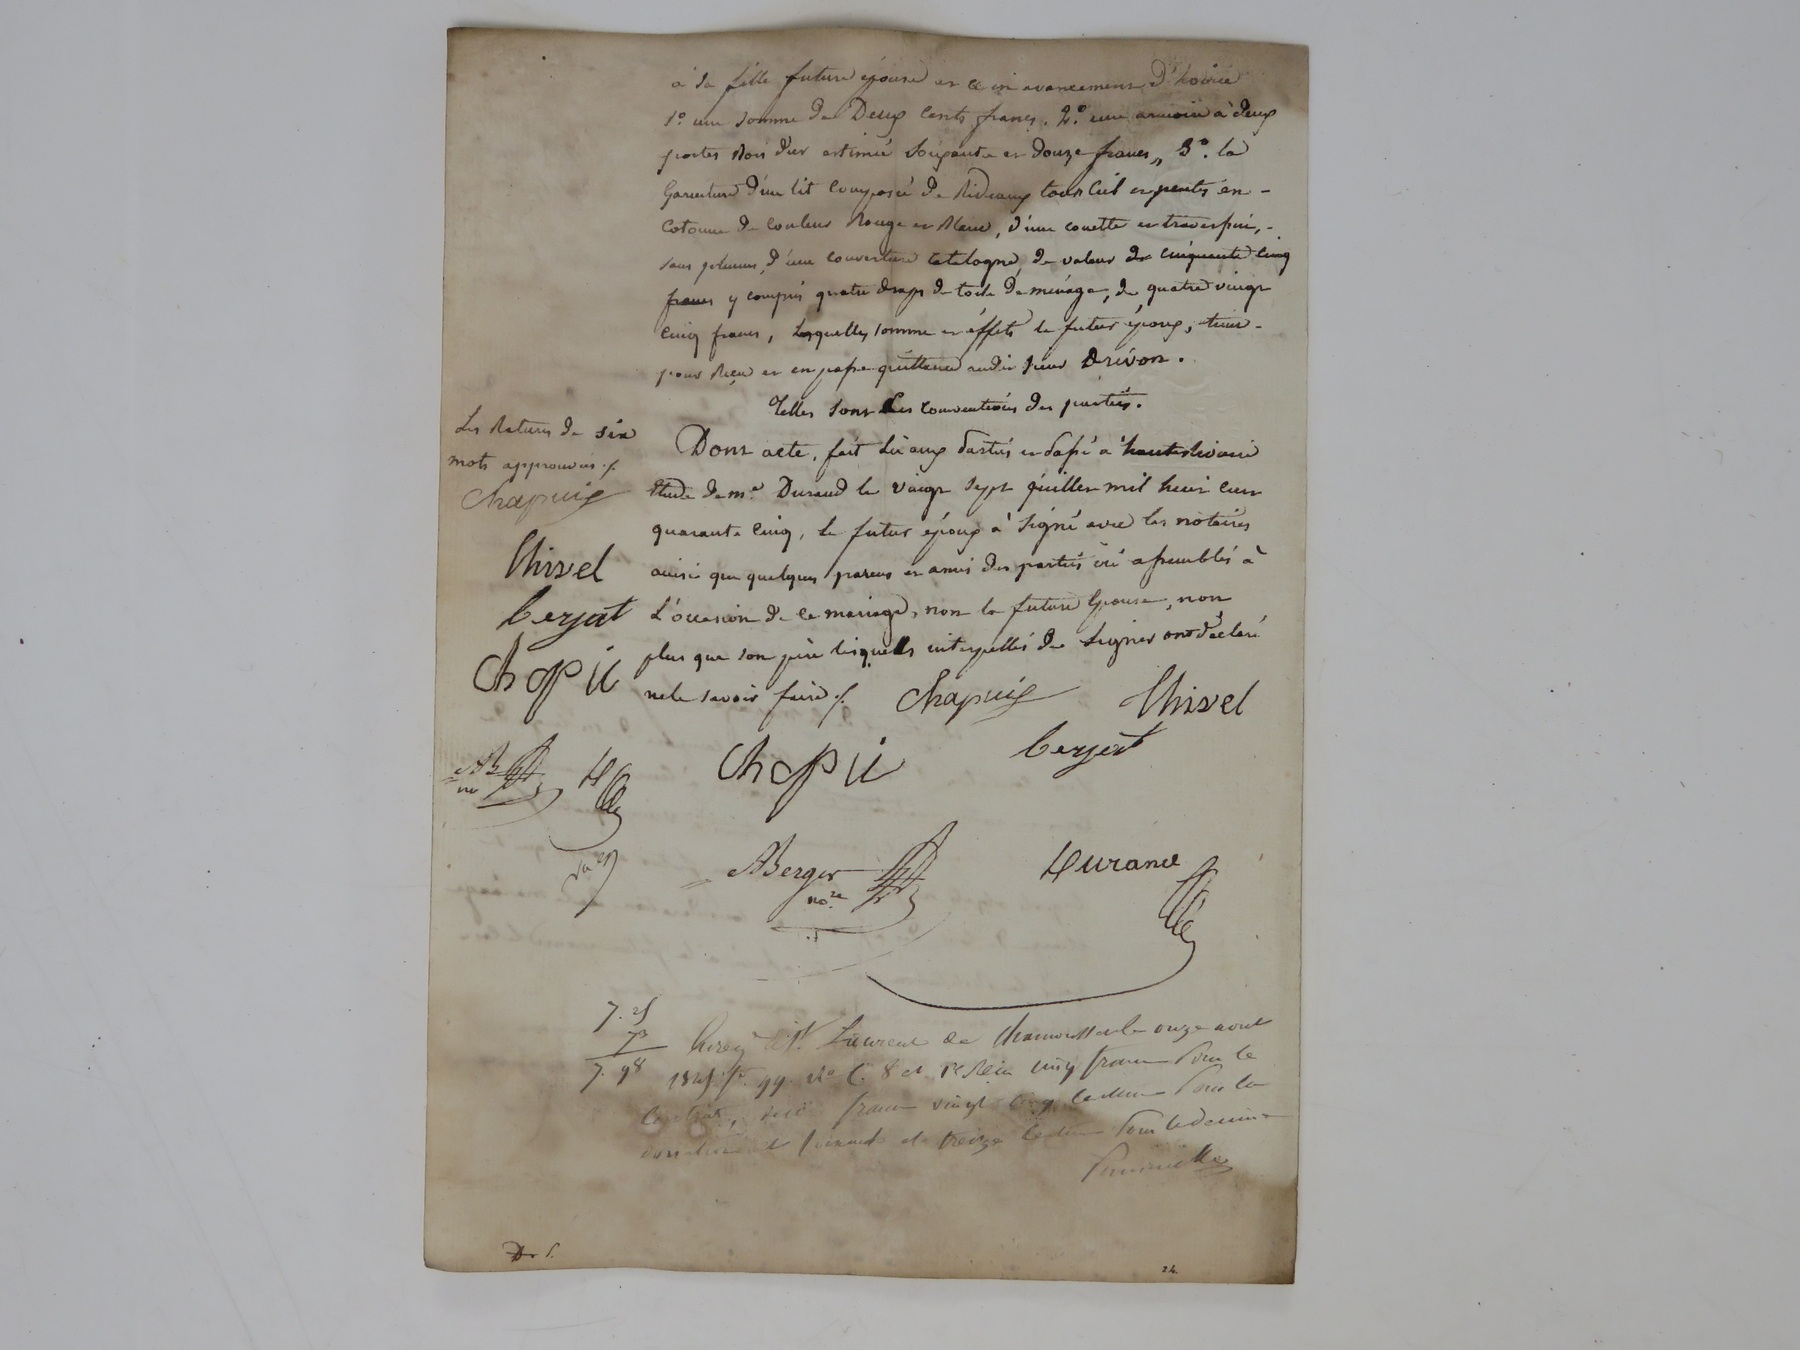 à sa fille future épouse et ce en avancement d'hoirie
1.° une somme de Deux Cents francs. 2.° une armoire à deux
portes bois dur estimée Soixante et douze francs, 3.° la
Garniture d'un lit composée de Rideaux tour Ciel et pentes en
Cotonne de Couleur Rouge et blanc, d'une couette et traverspin,
sans plumes, d'une couverture Catalogne, de valeur de cinquante cinq
francs y compris quatre draps de toile de ménage, de quatre vingt
cinq francs, Lesquelles somme et éffets le futur époux, tient
pour Reçu et en passe quittance audit sieur Drivon.
Telles sont Les conventions des parties.
Dont acte, fait Lu aux Parties et passé à hauterivoire
Etude de M.e Durand le vingt sept juillet mil huit cent
quarante cinq, le futur époux a signé avec les notaires
ainsi que quelques parens et amis des parties ici assemblés à
L'occasion de ce mariage, non la future Epouse, non
plus que son père lesquels interpellés de signer ont déclaré
ne le savoir faire ./.
Les Ratures de six
mots approuvées ./.
Chapuis
Thivel
Berjat
Chapuis Thivel
Berjat
ABerger
no.re
7. 25
73
7. 98
Enreg. à St. Laurent de Chamousset le onze aout
1845 f.° 99 R.o C. 8 et Reçu cinq francs Pour le
Contrat, francs vingt cinq centimes Pour la
donation et soixante et treize centimes Pour le decime
24.